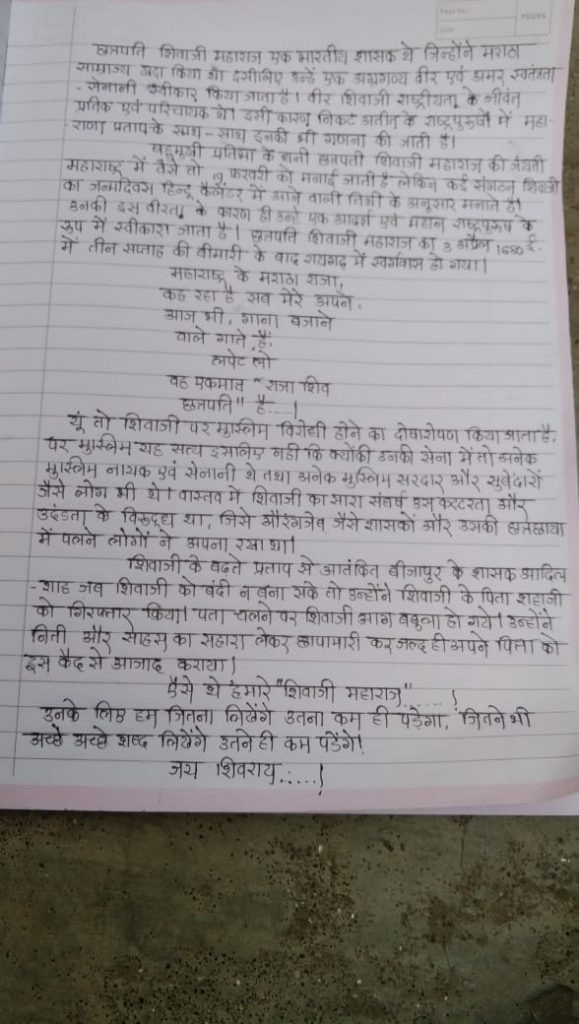 Page No.
Date
YOUVA
छत्रपति शिवाजी महाराज एक भारतीय शासक थे जिन्होंने मराठा
साम्राज्य खडा किया था इसीलिए उन्हें एक अग्रगण्य वीर एवं अमर स्वतंत्रता
- सेनानी स्वीकार किया जाता है। वीर शिवाजी राष्ट्रीयता के जीवंत
प्रतिक एवं परिचायक थे। इसी कारण निकट अतीत के राष्ट्रपुरुषों में महा
- राणा प्रताप के साथ - साथ इनकी भी गणना की जाती है।
बहुमूखी प्रतिभा के धनी छत्रपती शिवाजी महाराज की जयंती
महाराष्ट्र में वैसे तो 19 फरवरी को मनाई जाती है लेकिन कई संगठन शिवाजी
का जन्मदिवस हिन्दू कैलेंडर में आने वाली तिथी के अनुसार मनाते है।
उनकी इस वीरता के कारण ही उन्हे एक आदर्श एवं महान राष्ट्रपुरुष के
रूप में स्वीकारा जाता है। छत्रपति शिवाजी महाराज का 3 अप्रैल 1680 ई.
में तीन सप्ताह की बीमारी के बाद रायगड में स्वर्गवास हो गया।
महाराष्ट्र के मराठा राजा,
कह रहा है सब मेरे अपने.
आज भी, गाना बजाने
वाले गाते है,
लपेट लो
वह एकमात " राजा शिव
छत्रपति" है....।
यूं तो शिवाजी पर मुस्लिम विरोधी होने का दोषारोपण किया जाता है,
पर मुस्लिम यह सत्य इसलिए नही कि क्योंकी उनकी सेना में तो अनेक
मुस्लिम नायक एवं सेनानी थे तथा अनेक मुस्लिम सरदार और सुबेदारों
जैसे लोग भी थे। वास्तव में शिवाजी का सारा संघर्ष उस कट्टरता और
उदंडता के विरूद्ध था, जिसे औरंगजेब जैसे शासकों और उसकी छत्रछाया
में पलने लोगों ने अपना रखा था।
शिवाजी के बढते प्रताप से आतंकित बीजापुर के शासक आदिल
- शाह जब शिवाजी को बंदी न बना सके तो उन्होंने शिवाजी के पिता शहाजी
को गिरफ्तार किया। पता चलने पर शिवाजी आग बबुला हो गये। उन्होंने
निती और साहस का सहारा लेकर छापामारी कर जल्द ही अपने पिता को
इस कैद से आजाद कराया।
ऐसे थे हमारे "शिवाजी महाराज".....!
उनके लिए हम जितना लिखेंगे उतना कम ही पडेगा, जितने भी
अच्छे अच्छे शब्द लिखेंगे उतने ही कम पडेंगे!
जय शिवराय.....!